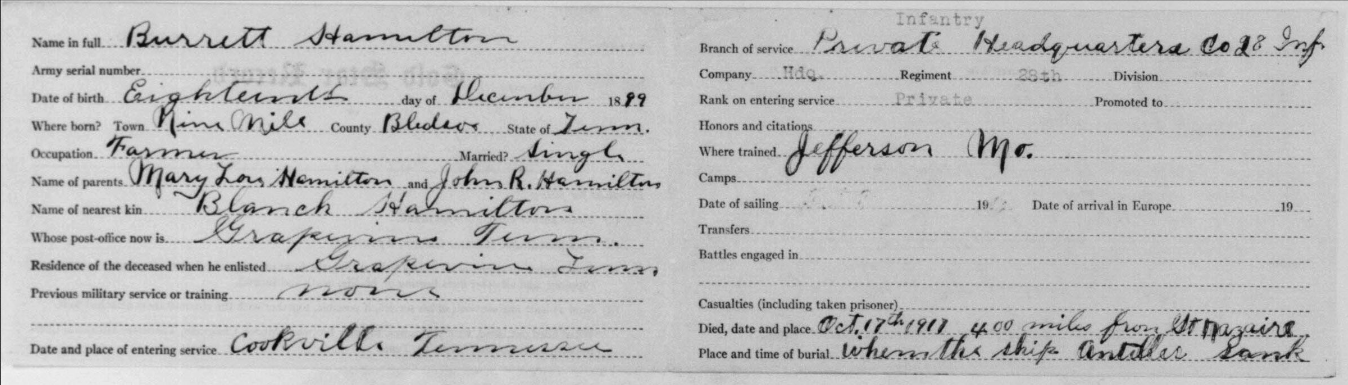 Name in full Burrett Hamilton
Army serial number
Date of birth Eighteenth day of December 1899
Where born? Town Nine Mile County Bledsoe State of Tenn.
Occupation Farmer Married? Single
Name of parents Mary Lou Hamilton and John R. Hamilton
Name of nearest kin Blanch Hamilton
Whose post-office now is Grapevine Tenn.
Residence of the deceased when he enlisted Grapevine Tenn
Previous military service or training none
Date and place of entering service Cookville Tennessee
Infantry
Branch of service Private Headquarters Co 28 Inf
Company Hdq. Regiment 28th Division
Rank on entering service Private Promoted to
Honors and citations
Where trained Jefferson Mo.
Camps
Date of sailing 19 Date of arrival in Europe 19
Transfers
Battles engaged in
Casualties (including taken prisoner)
Died, date and place Oct. 17th 1917 400 miles from St Nazaire
Place and time of burial When the ship Antilles Sank